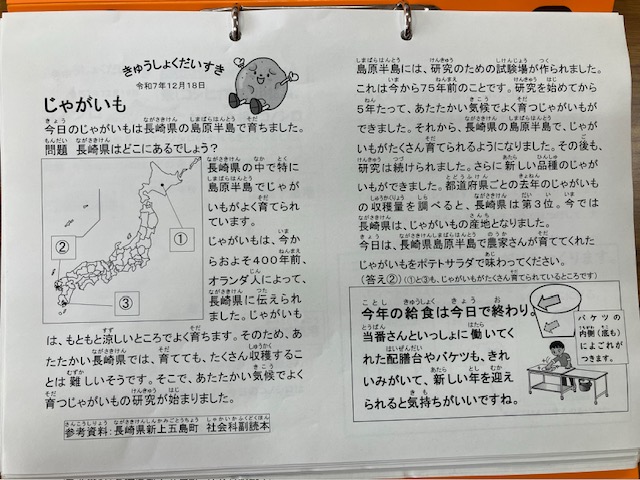 きゅうしょくだいすき
令和7年12月18日
じゃがいも
今日のじゃがいもは長崎県の島原半島で育ちました。
問題 長崎県はどこにあるでしょう？
①
②
③
長崎県の中で特に
島原半島でじゃが
いもがよく育てられ
ています。
じゃがいもは、今か
らおよそ400年前、
オランダ人によって、
長崎県に伝えられ
ました。じゃがいも
は、もともと涼しいところでよく育ちます。そのため、あ
たたかい長崎県では、育てても、たくさん収穫するこ
とは難しいそうです。そこで、あたたかい気候でよく
育つじゃがいもの研究が始まりました。
参考資料：長崎県新上五島町 社会科副読本
島原半島には、研究のための試験場が作られました。
これは今から75年前のことです。研究を始めてから
5年たって、あたたかい気候でよく育つじゃがいもが
できました。それから、長崎県の島原半島で、じゃが
いもがたくさん育てられるようになりました。その後も、
研究は続けられました。さらに新しい品種のじゃが
いもができました。都道府県ごとの去年のじゃがいも
の収穫量を調べると、長崎県は第3位。今では
長崎県は、じゃがいもの産地となりました。
今日は、長崎県島原半島で農家さんが育ててくれた
じゃがいもをポテトサラダで味わってください。
（答え②）（①と③も、じゃがいもがたくさん育てられているところです）
今年の給食は今日で終わり。
当番さんといっしょに働いてく
れた配膳台やバケツも、きれ
いみがいて、新しい年を迎え
られると気持ちがいいですね。
バケツの
内側（底も）
によごれが
つきます。